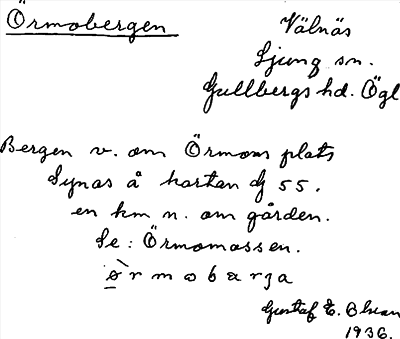 Örmobergen
Välnäs
Ljung sn.
Gullbergs hd. Ögl
Bergen v. om Örmons plats
Synas å kartan 55.
en km n. om gården.
Se: Örmomossen.
ø̀rmobarga
Gustaf E.
1936.